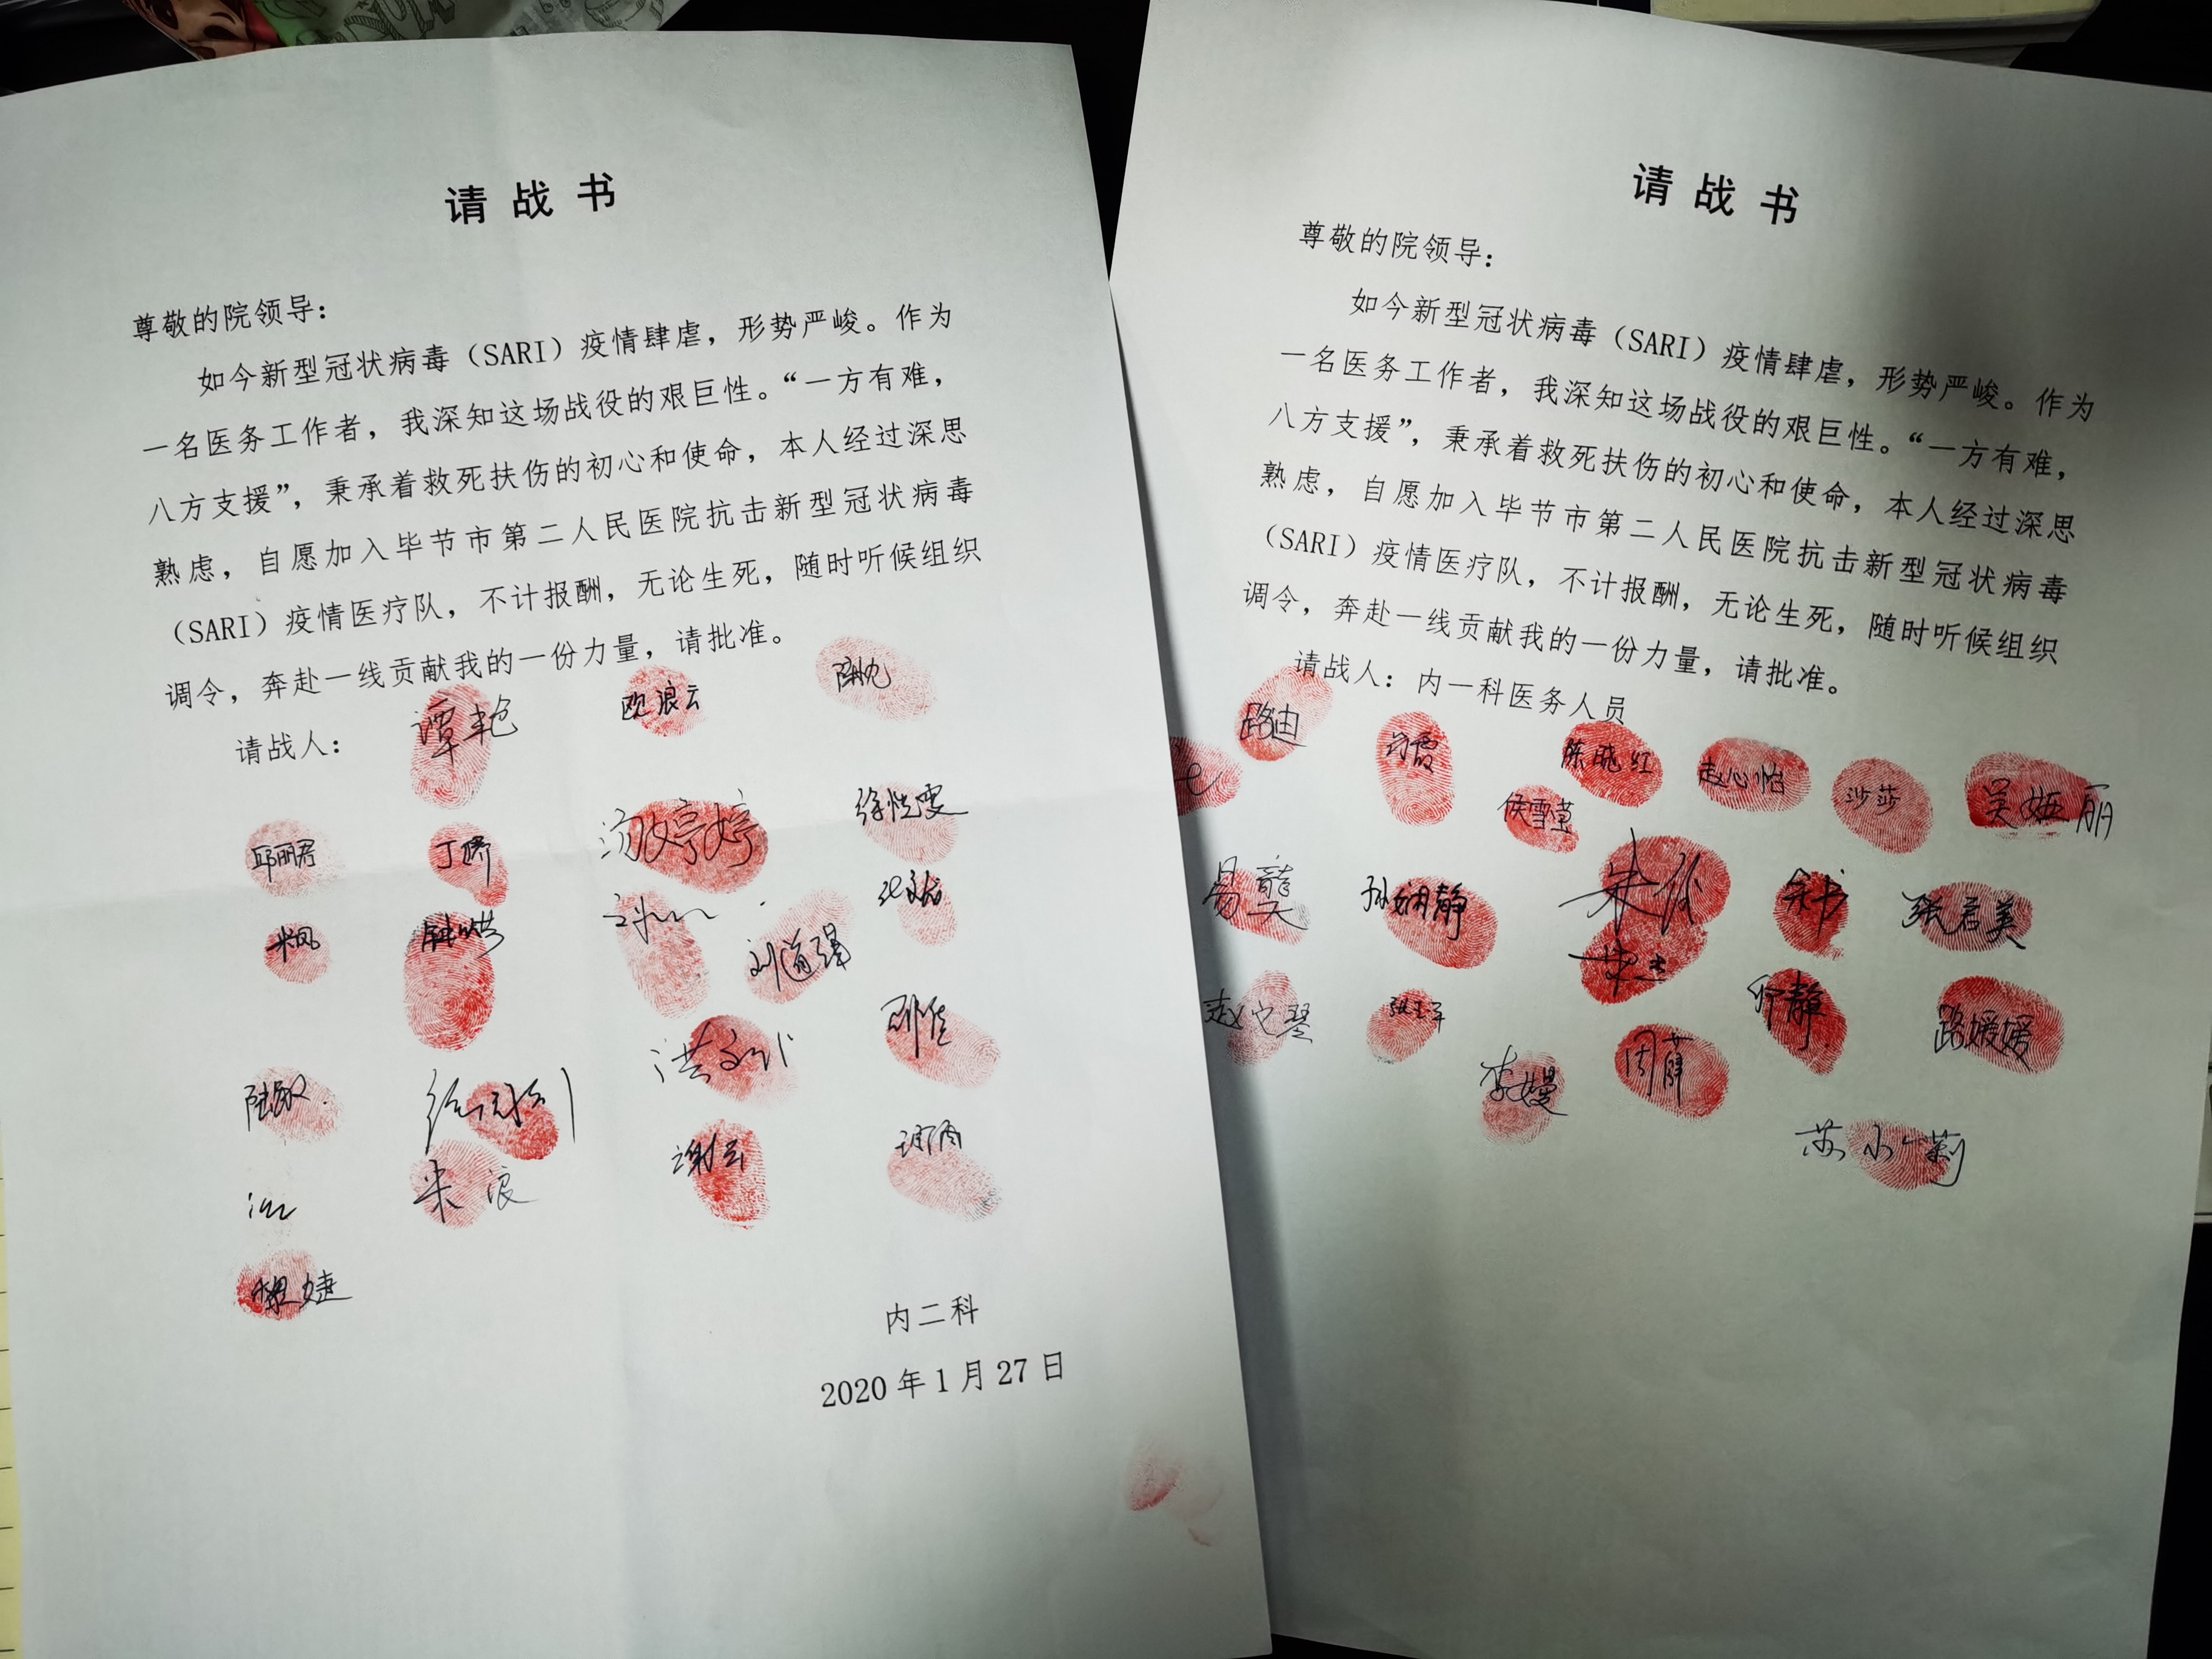 请战书
尊敬的院领导：
如今新型冠状病毒（SARI）疫情肆虐，形势严峻。作为
一名医务工作者，我深知这场战役的艰巨性。“一方有难，
八方支援”，秉承着救死扶伤的初心和使命，本人经过深思
熟虑，自愿加入毕节市第二人民医院抗击新型冠状病毒
（SARI）疫情医疗队，不计报酬，无论生死，随时听候组织
调令，奔赴一线贡献我的一份力量，请批准。
请战人：
谭艳 欧浪云
邱丽君 丁娇 汤婷婷
刘道瑶
陆敏
朱浪 谢云
内二科
2020年1月27日
请战书
尊敬的院领导：
如今新型冠状病毒（SARI）疫情肆虐，形势严峻。作为
一名医务工作者，我深知这场战役的艰巨性。“一方有难，
八方支援”，秉承着救死扶伤的初心和使命，本人经过深思
熟虑，自愿加入毕节市第二人民医院抗击新型冠状病毒
（SARI）疫情医疗队，不计报酬，无论生死，随时听候组织
调令，奔赴一线贡献我的一份力量，请批准。
请战人：内一科医务人员
路迪 陈晓红 赵心怡 沙莎 吴娅丽
孙娴静 余书 张君美
路媛媛
李嫚 周薛
苏小莉